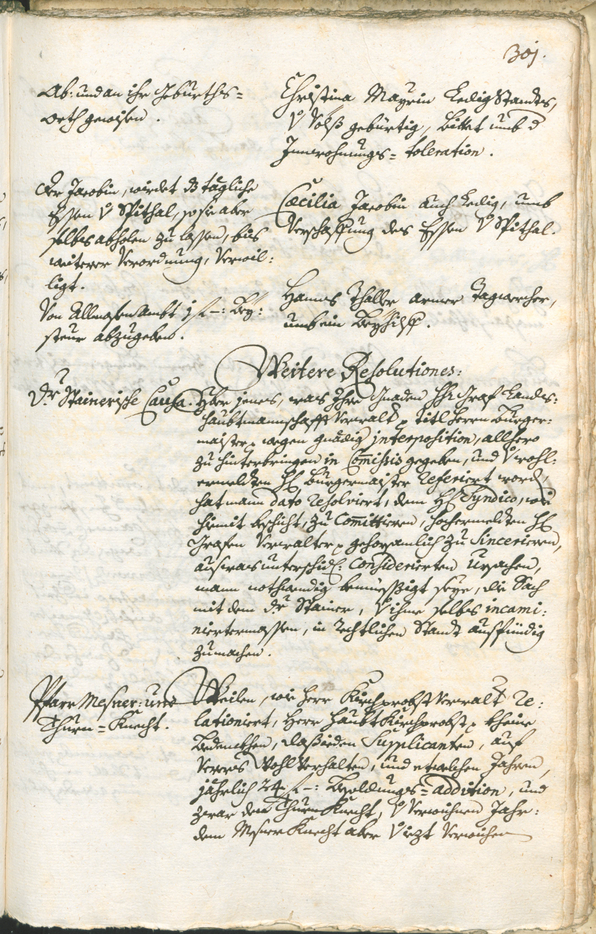 301.
Ab: und an ihr geburths=
orth gewisen.
Christina Mayrin ledig Standts,
V Vells gebürtig, bittet umb d
Innwohnungs= toleration.
Der Jacobin, würdet dz tägliche
Essen V Spithal, so sie aber
selbs abholen zu lassen, bis
weiterer verordnung, verwil:
ligt.
Cæcilia Jacobin auch ledig, umb
Verschaffung des Essen V Spithal.
Von Allmosen Ambt 1 f –: Bey:
steur abzugeben.
Hannes Thaller armer Tagwercher,
umb ein Beyhilf.
Weitere Resolutiones:
Dr Stainerische Causa.
Über jenes, was Ihr Gnaden Hh: Graf Landts:
haubtmannschafft Verwalter titl Herrn Burger:
maister wegen gnädig interposition, allhero
zu hinterbringen in Comissis gegeben, und V wohl:
ermelten H: Burgermaister referiert worden
hat man dato resolviert, dem H: Syndico, wie
hiemit beschicht, zu Committieren, hochermelten H:
Grafen Verwalter gehorsamlich zu Sincerieren,
aus was unterschidl: Considerierten ursachen,
mann nothwendig bemüessigt seye, die Sach
mit dem Dr Stainer, V ihme selbs incami:
niertermassen, in rechtlichen Standt ausfündig
zumachen.
Pfarr Mesner: und
Thurn= Knecht.
Weilen, wie Herr Kirchprobst Verwalter re:
lationiret, Herr Haubt Kirchprobst kheine
Bedenkhen, das beden Supplicanten, auf
ferers Wohl Verhalten, und etwelche Jahren,
jährlich 24 f –: Besoldungs= addition, und
zwar dem Thurn Knecht, V verwichnen Jahr:
dem Mesner Knecht aber V iezt verwichen